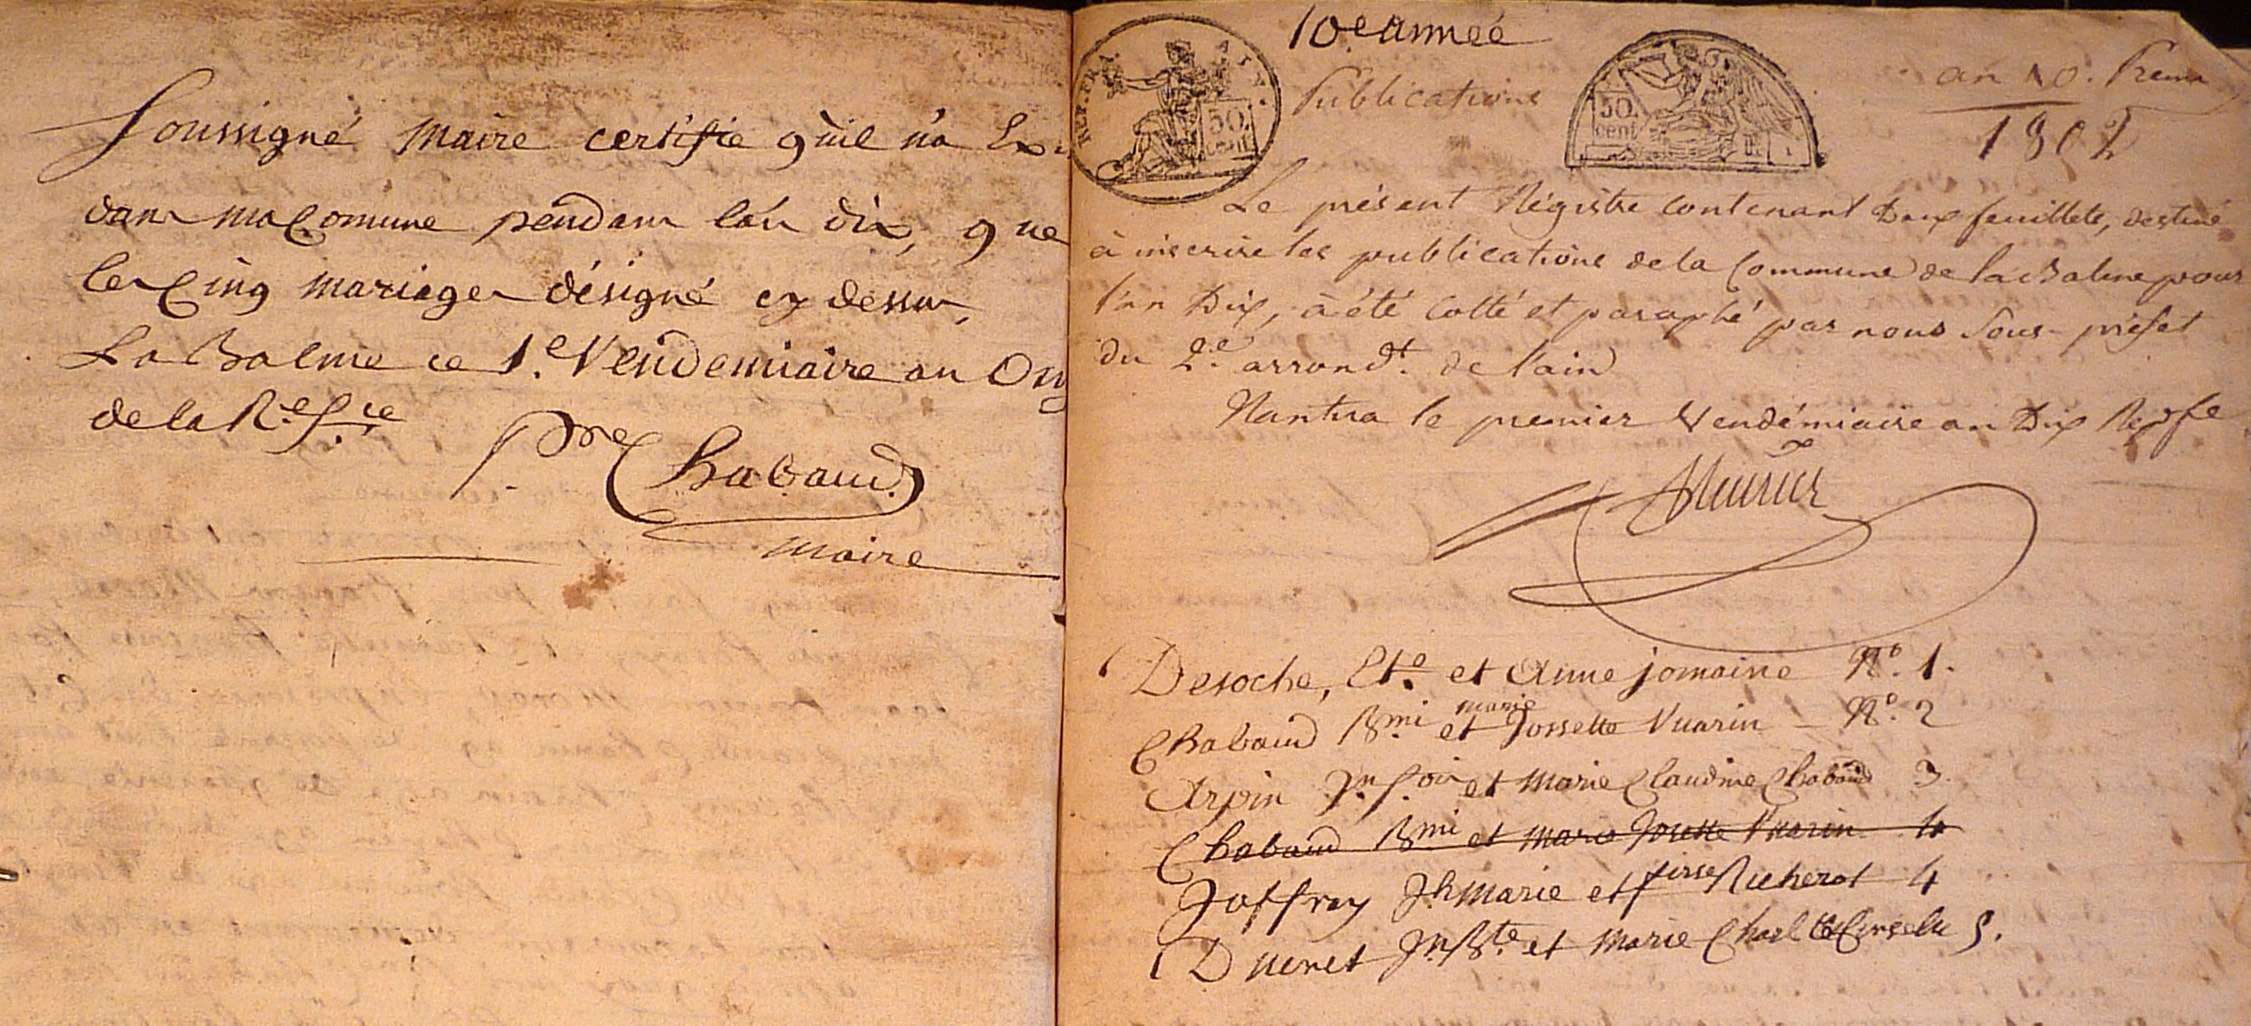 Soussigné maire certifie qu'il n'a
dans ma Comune pendant l'an dix, que
les Cinq mariages désigné cy dessus,
La Balme ce 1.e Vendemiaire an Onz
de la R.e f.ce
P.re Chabaud
maire
10e année
REP. FRA.
50.
cent.
Publications
50.
cent
an 10.
1802
Le présent Régistre contenant Deux feuillets, destiné
à inscrire les publications de la Commune de la Balme pour
l'an Dix, à été Cotté et paraphé par nous Sous-préfet
du 2.e arrond.t de l'ain
Nantua le premier Vendémiaire an Dix
Deroche, Et.e et Anne jomaine N.o 1.
Chabaud B.mi et marie Jossette Vuarin – N.o 2
Arpin J.n f.ois et Marie Claudine Chabaud 3.
Chabaud B.mi et Marie Josette Vuarin 4
Joffrey Jh Marie et Richerot 4
Ducret J.n B.te et Marie 5.